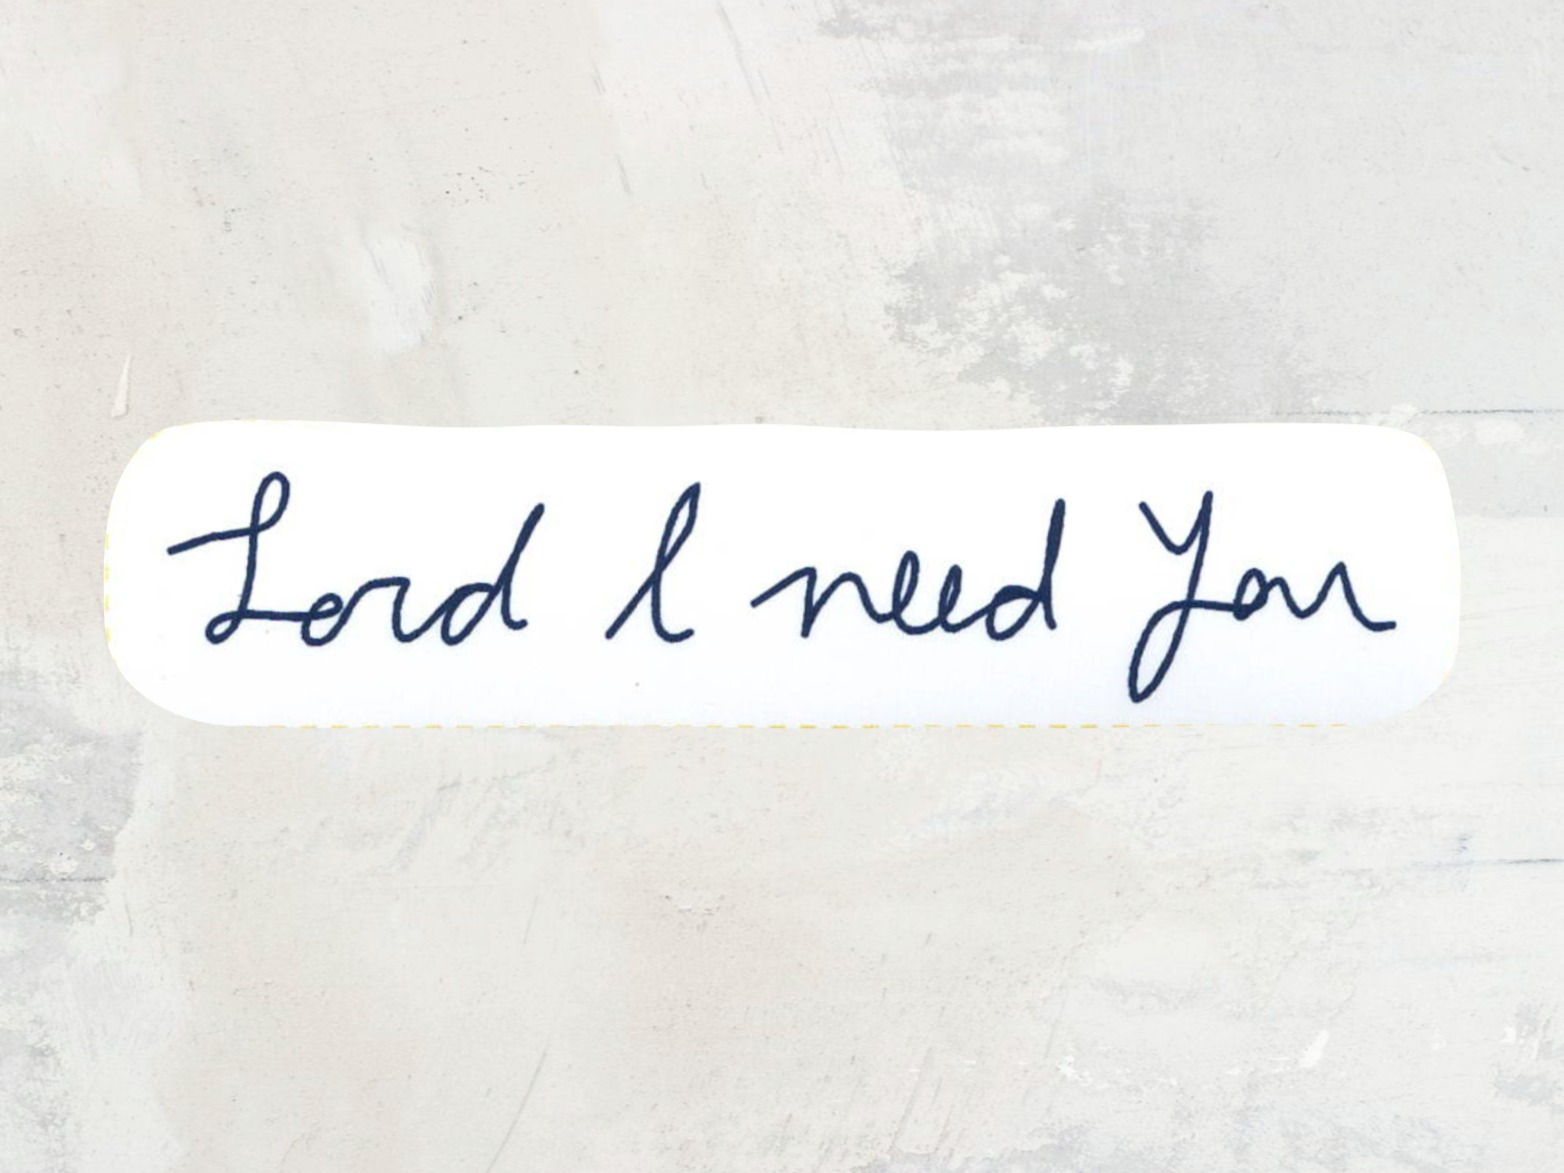 Lord I need You